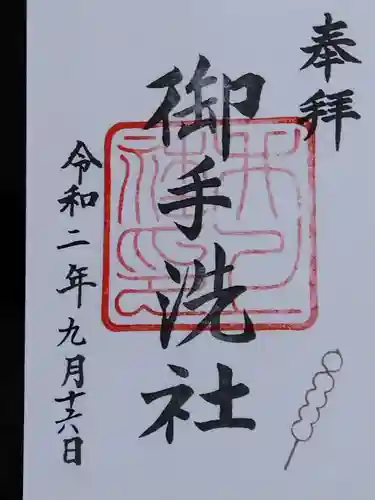 奉拝
御手洗社
令和二年九月十六日